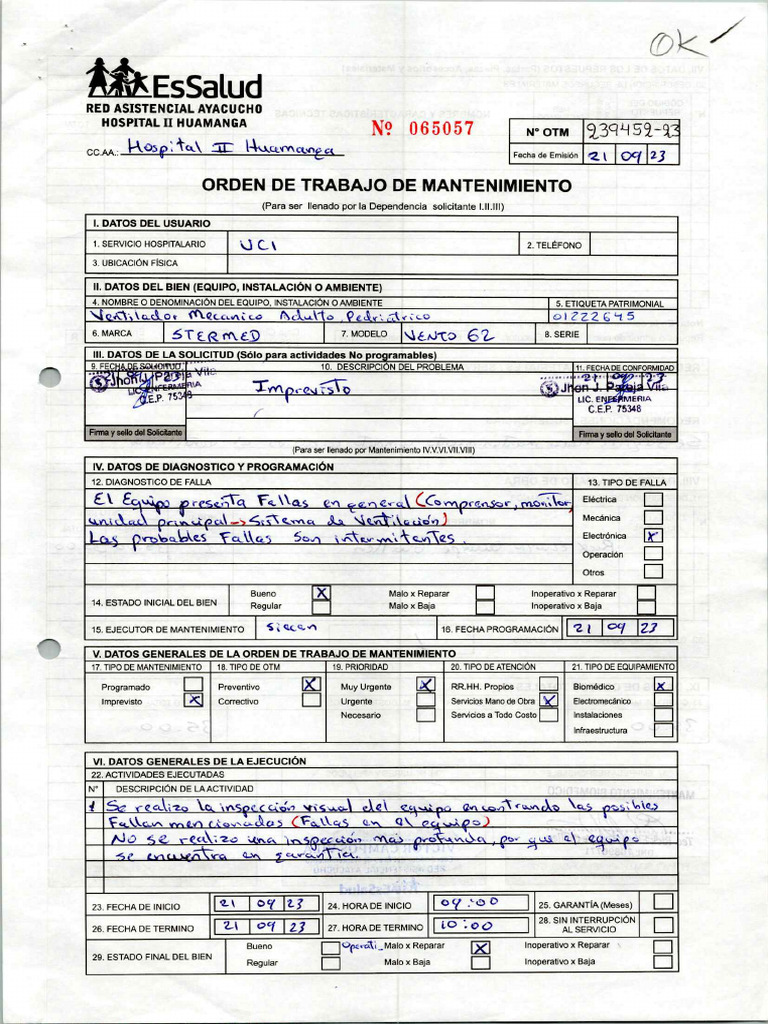 OK
EsSalud
RED ASISTENCIAL AYACUCHO
HOSPITAL II HUAMANGA
CC.AA.: Hospital II Huamanga
Nº 065057
N° OTM 239452-23
Fecha de Emisión 21 09 23
ORDEN DE TRABAJO DE MANTENIMIENTO
(Para ser llenado por la Dependencia solicitante I.II.III)
I. DATOS DEL USUARIO
1. SERVICIO HOSPITALARIO UCI 2. TELÉFONO
3. UBICACIÓN FÍSICA
II. DATOS DEL BIEN (EQUIPO, INSTALACIÓN O AMBIENTE)
4. NOMBRE O DENOMINACIÓN DEL EQUIPO, INSTALACIÓN O AMBIENTE 5. ETIQUETA PATRIMONIAL
Ventilador Mecanico Adulto, Pedriatrico 01222645
6. MARCA STERMED 7. MODELO VENTO 62 8. SERIE
III. DATOS DE LA SOLICITUD (Sólo para actividades No programables)
9. FECHA DE SOLICITUD 10. DESCRIPCIÓN DEL PROBLEMA 11. FECHA DE CONFORMIDAD
21 09 23
Jhon J. Pareja Vila Imprevisto Jhon J. Pareja Vila
LIC. ENFERMERIA LIC. ENFERMERIA
C.E.P. 75348 C.E.P. 75348
Firma y sello del Solicitante Firma y sello del Solicitante
(Para ser llenado por Mantenimiento IV.V.VI.VII.VIII)
IV. DATOS DE DIAGNOSTICO Y PROGRAMACIÓN
12. DIAGNOSTICO DE FALLA 13. TIPO DE FALLA
El Equipo presenta Fallas en general (Comprensor, monitor, Eléctrica
unidad principal -> Sistema de Ventilación) Mecánica
Las probables Fallas Son intermitentes. Electrónica x
Operación
Otros
14. ESTADO INICIAL DEL BIEN Bueno x Malo x Reparar Inoperativo x Reparar
Regular Malo x Baja Inoperativo x Baja
15. EJECUTOR DE MANTENIMIENTO 16. FECHA PROGRAMACIÓN 21 09 23
V. DATOS GENERALES DE LA ORDEN DE TRABAJO DE MANTENIMIENTO
17. TIPO DE MANTENIMIENTO 18. TIPO DE OTM 19. PRIORIDAD 20. TIPO DE ATENCIÓN 21. TIPO DE EQUIPAMIENTO
Programado Preventivo x Muy Urgente x RR.HH. Propios Biomédico x
Imprevisto x Correctivo Urgente Servicios Mano de Obra x Electromecánico
Necesario Servicios a Todo Costo Instalaciones
Infraestructura
VI. DATOS GENERALES DE LA EJECUCIÓN
22. ACTIVIDADES EJECUTADAS
N° DESCRIPCIÓN DE LA ACTIVIDAD
1 Se realizo la inspección visual del equipo encontrando las posibles
Fallan mencionadas (Fallas en el equipo)
No se realizo una inspección mas profunda, por que el equipo
se encuentra en garantia.
23. FECHA DE INICIO 21 09 23 24. HORA DE INICIO 09:00 25. GARANTÍA (Meses)
26. FECHA DE TERMINO 21 09 23 27. HORA DE TERMINO 10:00 28. SIN INTERRUPCIÓN
AL SERVICIO
29. ESTADO FINAL DEL BIEN Bueno Operati_ Malo x Reparar x Inoperativo x Reparar
Regular Malo x Baja Inoperativo x Baja